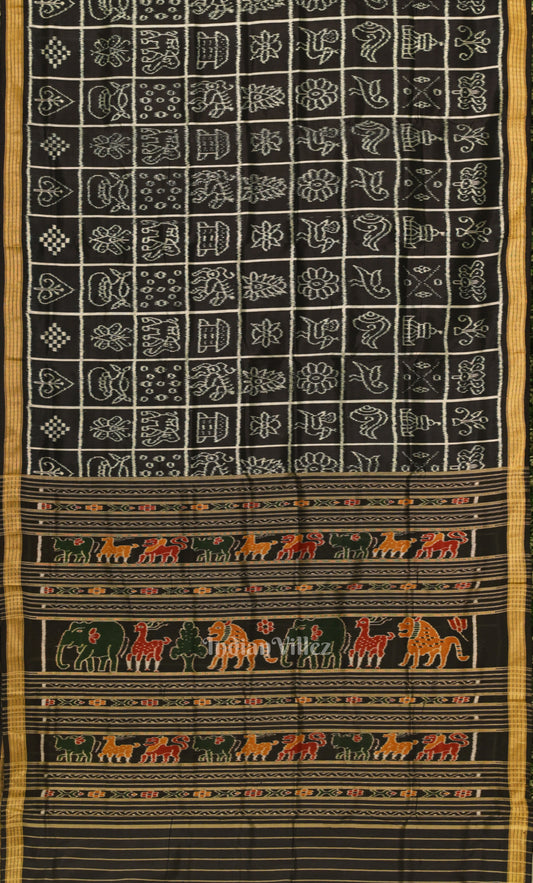 Indian Villez